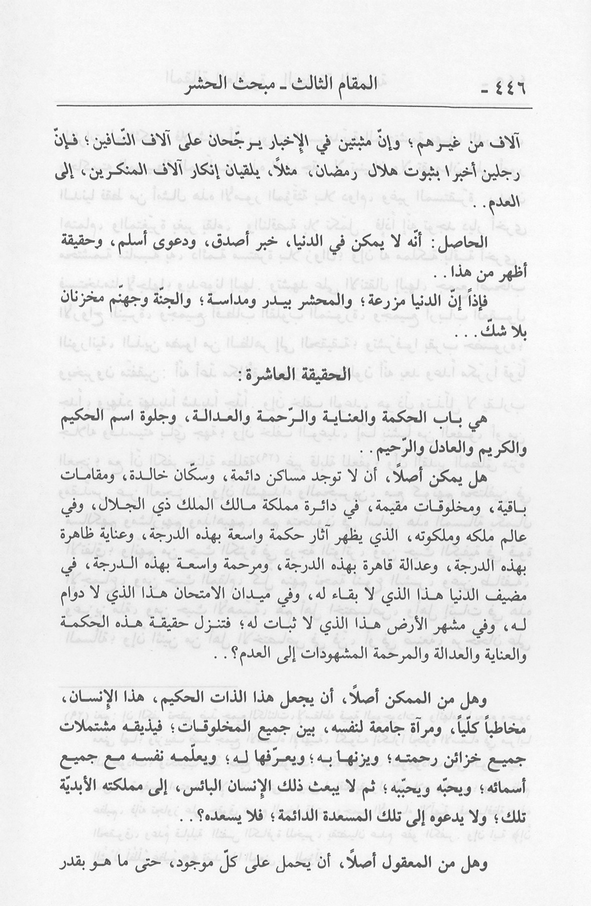 ٤٤٦ - المقام الثالث - مبحث الحشر
آلاف من غيرهم؛ وإنّ مثبتين في الإخبار يرجّحان على آلاف النّافين؛ فإنّ
رجلين أخبرا بثبوت هلال رمضان، مثلاً، يلقيان إنكار آلاف المنكرين، إلى
العدم..
الحاصل: أنّه لا يمكن في الدنيا، خبر أصدق، ودعوى أسلم، وحقيقة
أظهر من هذا..
فإذاً إنّ الدنيا مزرعة؛ والمحشر بيدر ومداسة؛ والجنّة وجهنّم مخزنان
بلا شكّ...
الحقيقة العاشرة:
هي باب الحكمة والعناية والرّحمة والعدالة، وجلوة اسم الحكيم
والكريم والعادل والرّحيم..
هل يمكن أصلاً، أن لا توجد مساكن دائمة، وسكّان خالدة، ومقامات
باقية، ومخلوقات مقيمة، في دائرة مملكة مالك الملك ذي الجلال، وفي
عالم ملكه وملكوته، الذي يظهر آثار حكمة واسعة بهذه الدرجة، وعناية ظاهرة
بهذه الدرجة، وعدالة قاهرة بهذه الدرجة، ومرحمة واسعة بهذه الدرجة، في
مضيف الدنيا هذا الذي لا بقاء له، وفي ميدان الامتحان هذا الذي لا دوام
له، وفي مشهر الأرض هذا الذي لا ثبات له؛ فتنزل حقيقة هذه الحكمة
والعناية والعدالة والمرحمة المشهودات إلى العدم؟..
وهل من الممكن أصلاً، أن يجعل هذا الذات الحكيم، هذا الإنسان،
مخاطباً كلّياً، ومرآة جامعة لنفسه، بين جميع المخلوقات؛ فيذيقه مشتملات
جميع خزائن رحمته؛ ويزنها به؛ ويعرّفها له؛ ويعلّمه نفسه مع جميع
أسمائه؛ ويحبّه ويحبّبه؛ ثم لا يبعث ذلك الإنسان البائس، إلى مملكته الأبديّة
تلك؛ ولا يدعوه إلى تلك المسعدة الدائمة؛ فلا يسعده؟..
وهل من المعقول أصلاً، أن يحمل على كلّ موجود، حتى ما هو بقدر